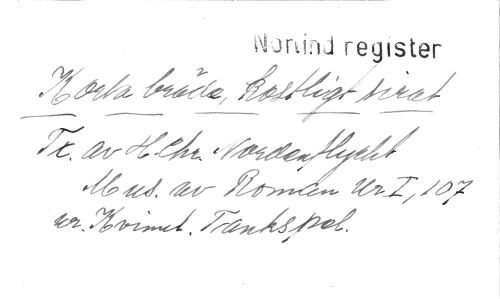 Norlind register
Korta bräda, kostligt sirat
Tx. av H. Chr. Nordenflycht
Mus. av Roman Ur I, 107
ur. Kvinnl. Tankspel.